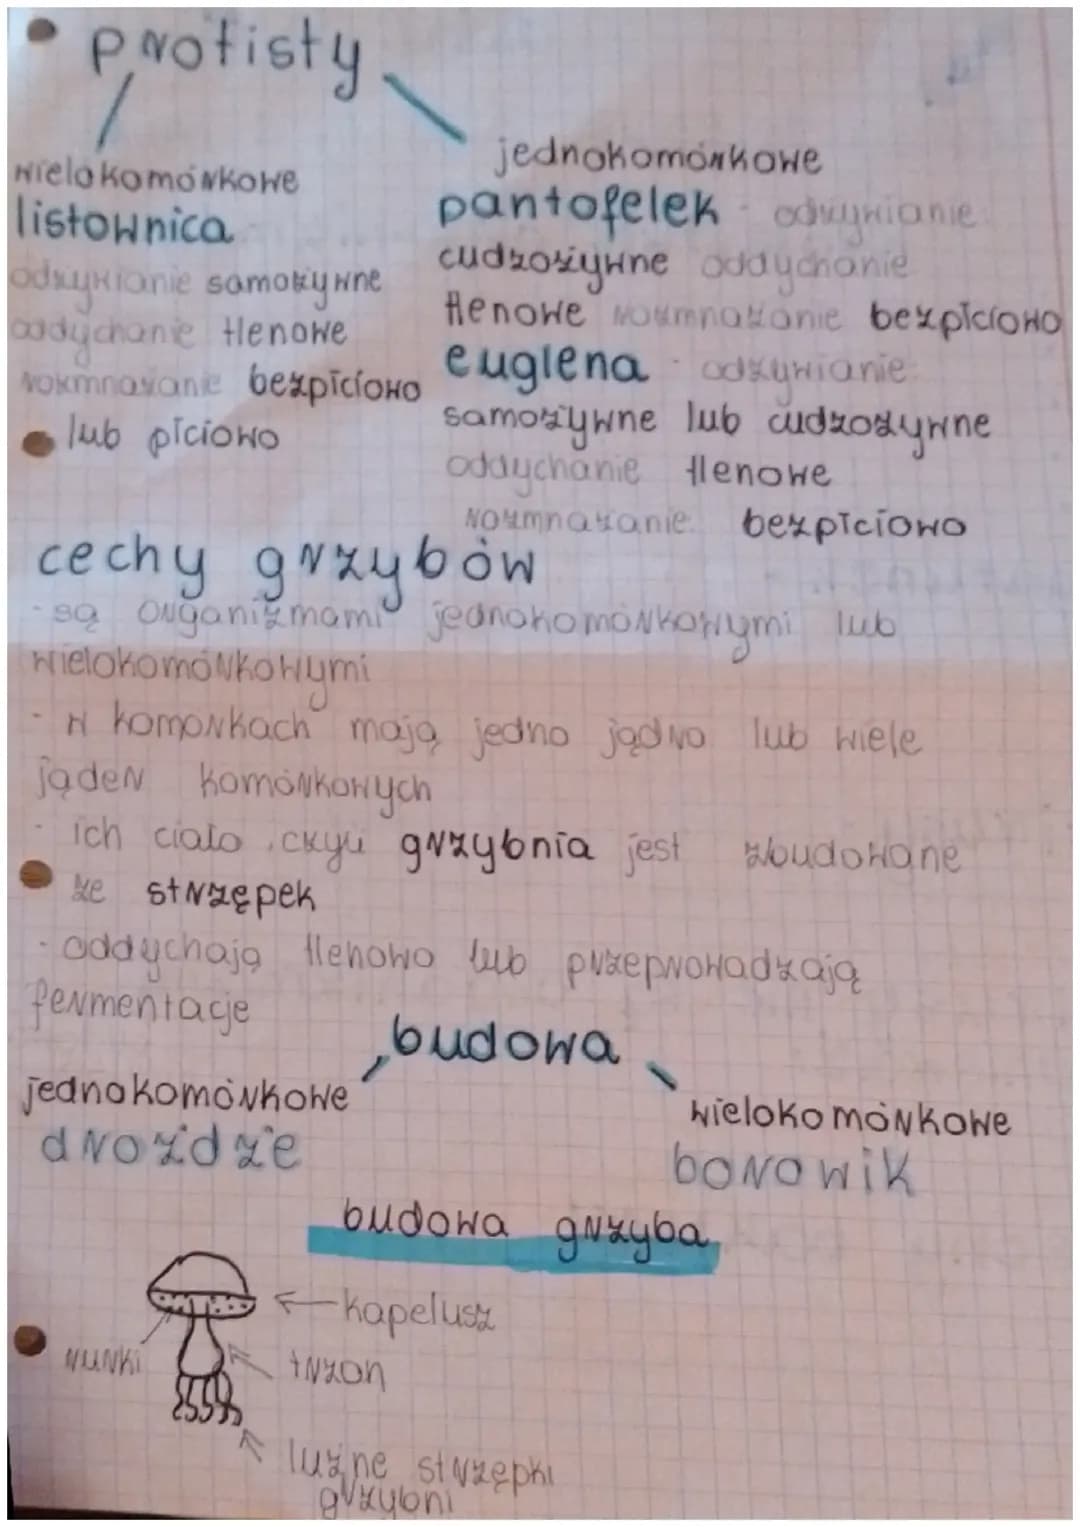 protisty
wielokomórkowe
listownica
odżywianie samożywne
oddychanie tlenowe
rozmnażanie bezpłciowo
lub płciowo
jednokomórkowe
pantofelek - odżywianie
cudzożywne oddychanie
tlenowe rozmnażanie bezpłciowo
euglena - odżywianie
samożywne lub cudzożywne
oddychanie tlenowe
rozmnażanie bezpłciowo
cechy grzybów
- są organizmami jednokomórkowymi lub
wielokomórkowymi
- w komórkach mają jedno jądro lub wiele
jąder komórkowych
- ich ciało, czyli grzybnia jest zbudowane
ze strzępek
- oddychają tlenowo lub przeprowadzają
fermentacje
budowa
jednokomórkowe
drożdże
wielokomórkowe
borowik
budowa grzyba
kapelusz
rurki
trzon
luźne strzępki
grzybni